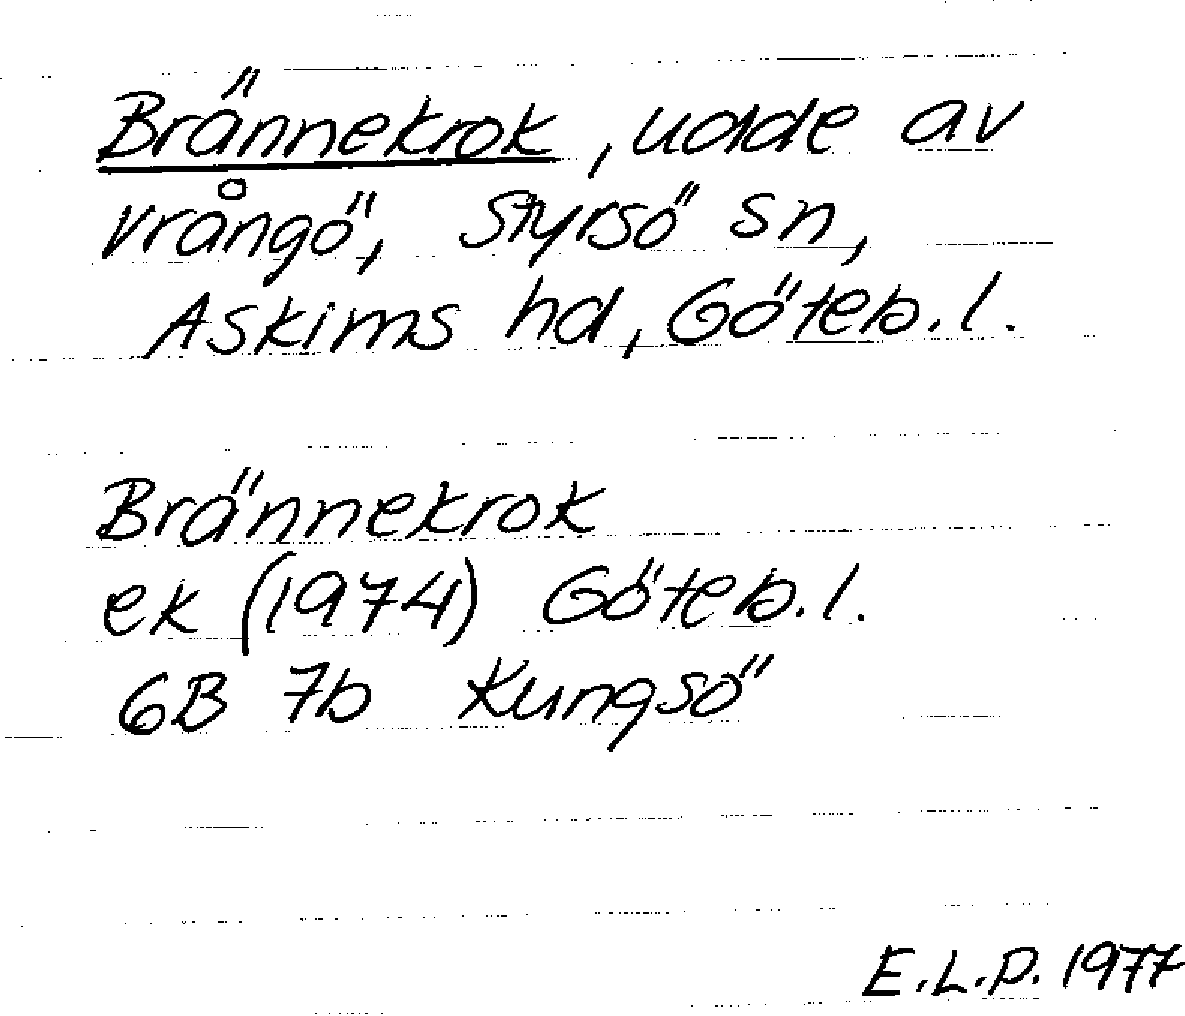 Brännekrok, udde av
Vrångö, Styrsö sn,
Askims hd, Göteb. l.
Brännekrok
ek (1974) Göteb. l.
6B 7b Kungsö
E.L.P. 1977